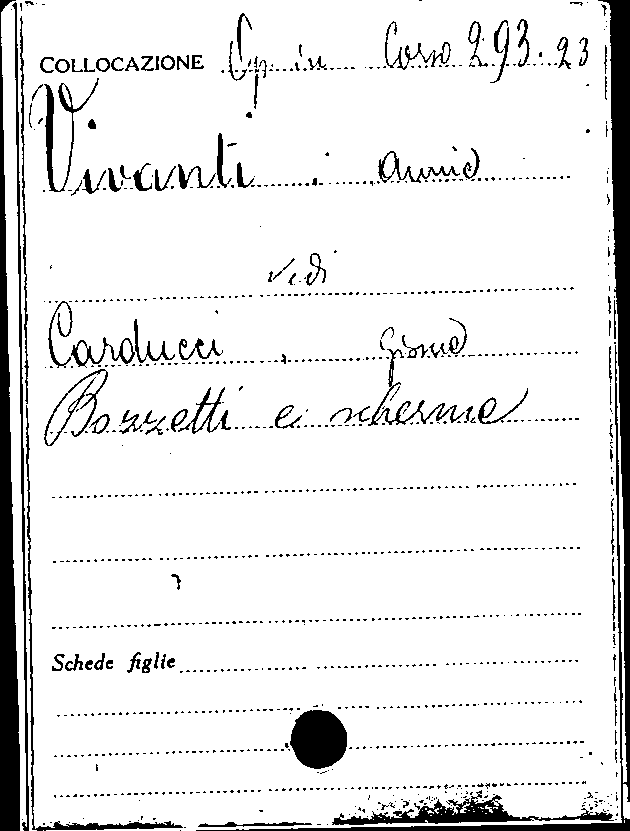 COLLOCAZIONE Op. in Corso 293.23
Vivanti, Annie
vedi
Carducci, Giosue
Bozzetti e scherme
Schede figlie